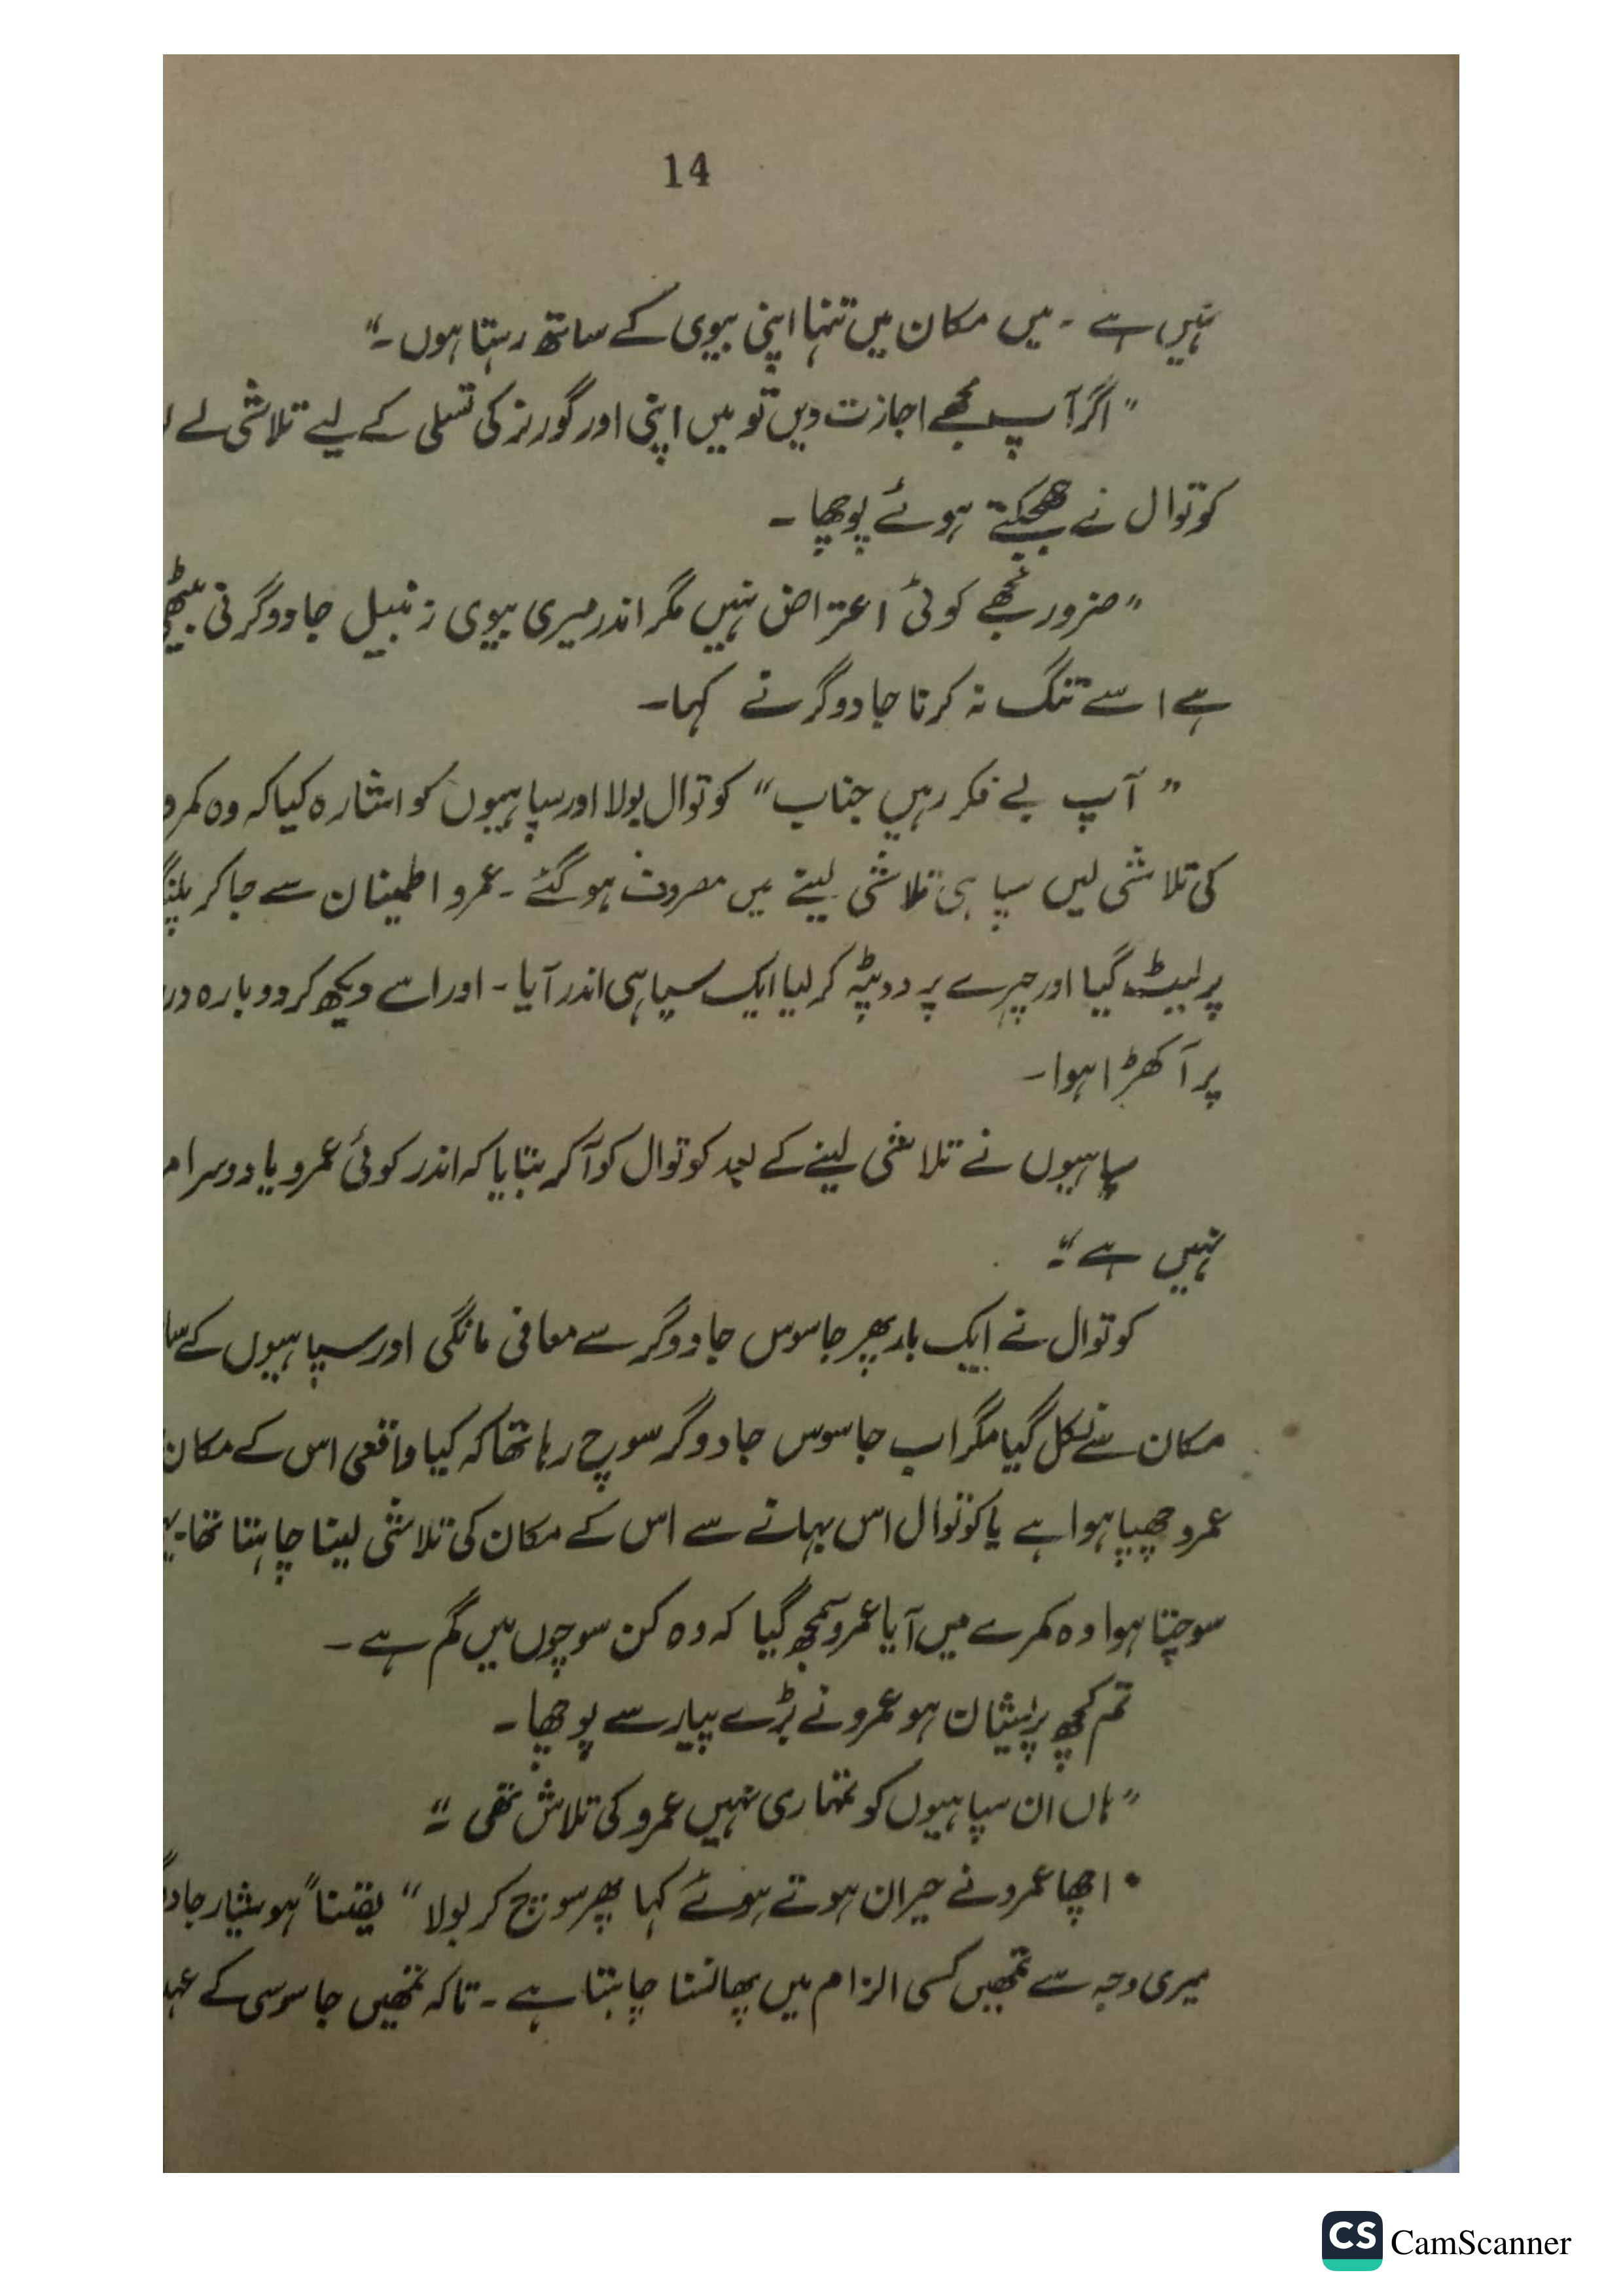 14
نہیں ہے ۔ میں مکان میں تنہا اپنی بیوی کے ساتھ رہتا ہوں ۔"
"اگر آپ مجھے اجازت دیں تو میں اپنی اور گورنر کی تسلی کے لیے تلاشی لے
کوتوال نے جھجکتے ہوئے پوچھا ۔
"ضرور مجھے کوئی اعتراض نہیں مگر اندر میری بیوی زنبیل جادوگرنی بیٹھی
ہے اسے تنگ نہ کرنا جادوگر نے کہا۔
"آپ بے فکر رہیں جناب" کوتوال بولا اور سپاہیوں کو اشارہ کیا کہ وہ
کی تلاشی لیں سپاہی تلاشی لینے میں مصروف ہو گئے ۔ عمرو اطمینان سے جا کر پلنگ
پر لیٹ گیا اور چہرے پر دوپٹہ کر لیا ایک سپاہی اندر آیا ۔ اور اسے دیکھ کر دوبارہ
پر آ کھڑا ہوا ۔
سپاہیوں نے تلاشی لینے کے بعد کوتوال کو آکر بتایا کہ اندر کوئی عمرو یا دوسرا
نہیں ہے "۔
کوتوال نے ایک بار پھر جاسوس جادوگر سے معافی مانگی اور سپاہیوں کے
مکان سے نکل گیا مگر اب جاسوس جادوگر سوچ رہا تھا کہ کیا واقعی اس کے مکان
عمرو چھپا ہوا ہے یا کوتوال اس بہانے سے اس کے مکان کی تلاشی لینا چاہتا تھا۔
سوچتا ہوا وہ کمرے میں آیا عمرو سمجھ گیا کہ وہ کن سوچوں میں گم ہے ۔
تم کچھ پریشان ہو عمرو نے بڑے پیار سے پوچھا ۔
"ہاں ان سپاہیوں کو تمہاری نہیں عمرو کی تلاش تھی "۔
" اچھا عمرو نے حیران ہوتے ہوئے کہا پھر سوچ کر بولا " یقیناً ہوشیار
میری وجہ سے تمھیں کسی الزام میں پھانسنا چاہتا ہے ۔ تاکہ تمھیں جاسوسی کے
CS CamScanner